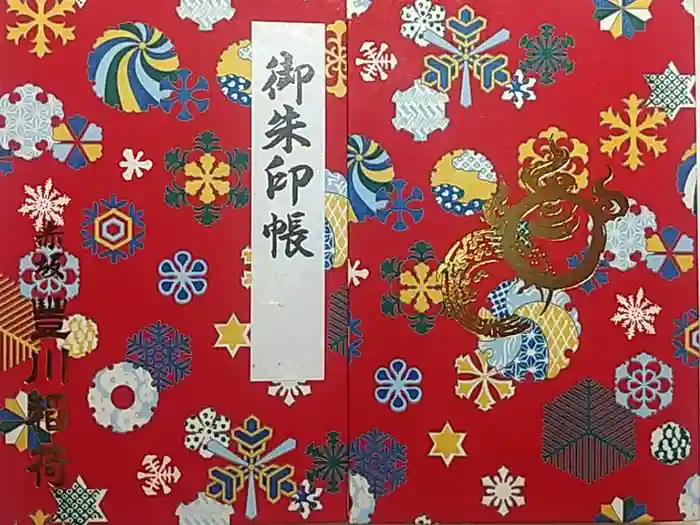 御朱印帳
赤坂豐川稲荷